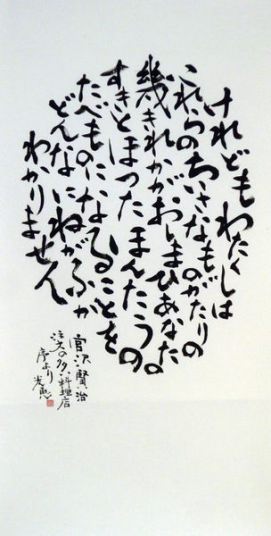 けれどもわたくしは
これらのちいさなものがたりの
幾きれかがおしまひあなたの
すきとほつたほんたうの
たべものになることを
どんなにねがふか
わかりません
宮沢賢治
注文の多い料理店
序より